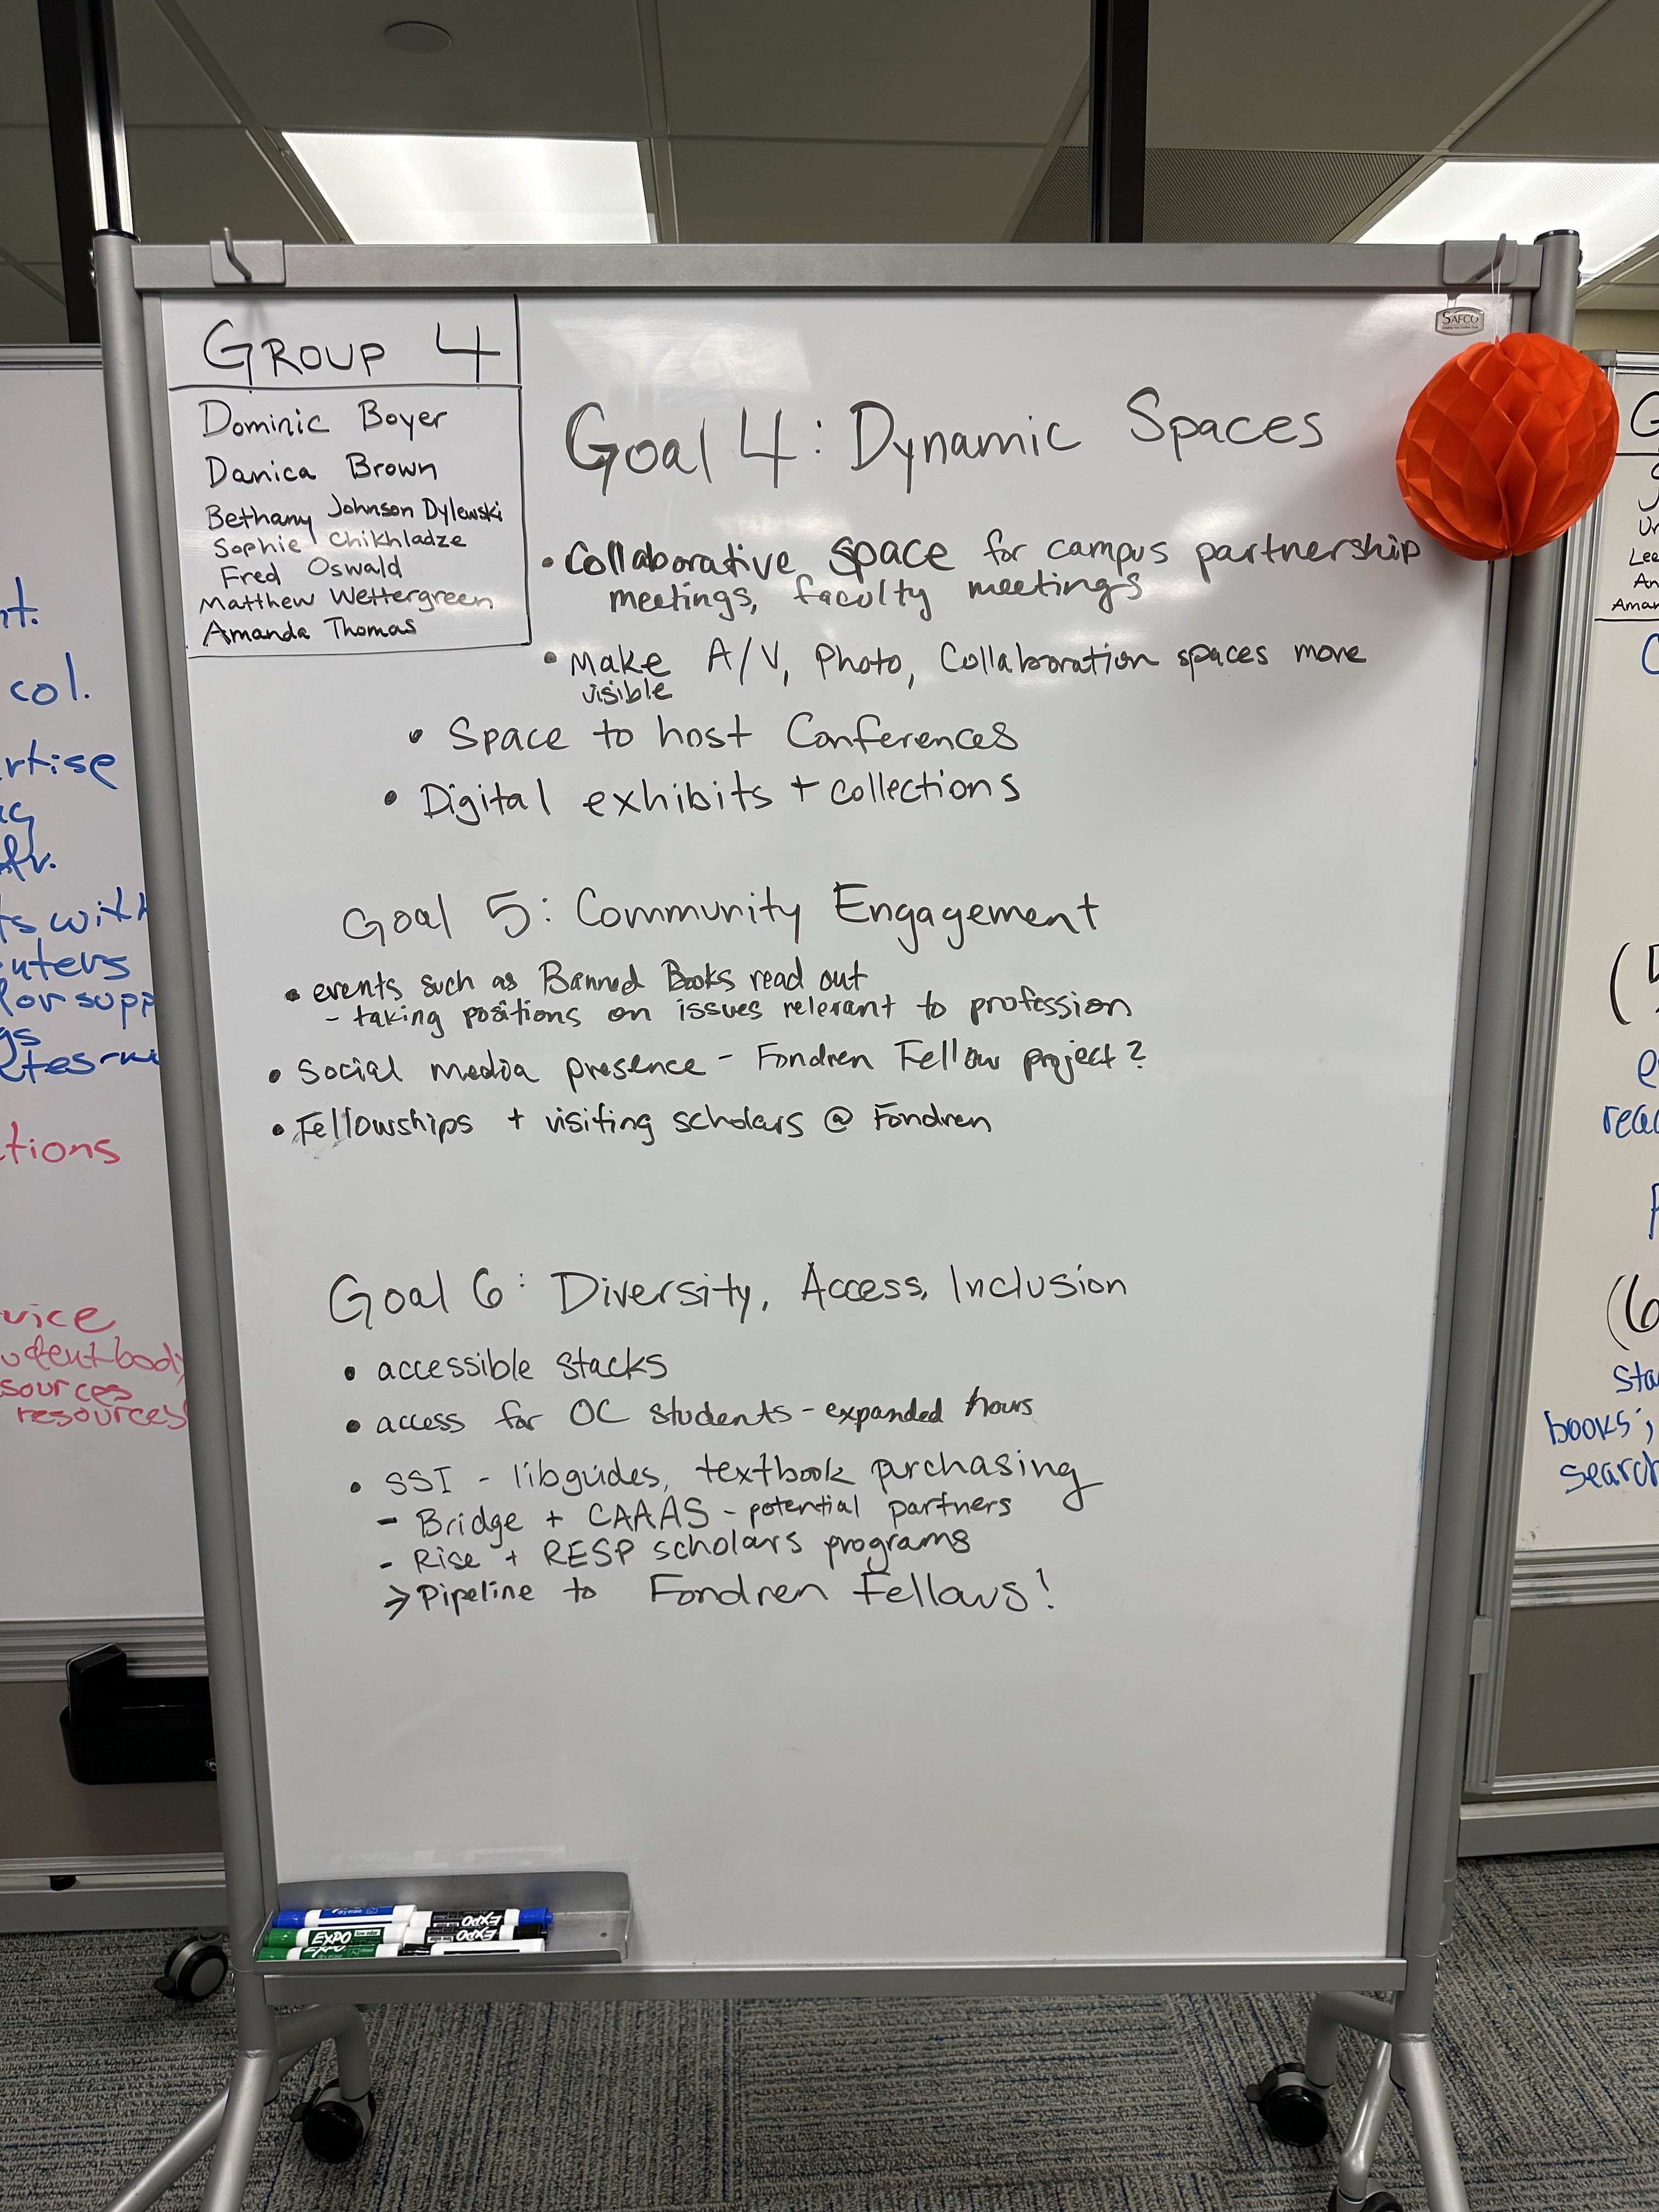 GROUP 4
Dominic Boyer
Danica Brown
Bethany Johnson Dylewski
Sophie Chikhladze
Fred Oswald
Matthew Wettergreen
Amanda Thomas
SAFCO
Goal 4: Dynamic Spaces
• Collaborative space for campus partnership
meetings, faculty meetings
• Make A/V, Photo, Collaboration spaces more
visible
• Space to host Conferences
• Digital exhibits + collections
Goal 5: Community Engagement
• events such as Banned Books read out
- taking positions on issues relevant to profession
• Social media presence - Fondren Fellow project?
• Fellowships + visiting scholars @ Fondren
Goal 6: Diversity, Access, Inclusion
• accessible stacks
• access for OC students - expanded hours
• SSI - libguides, textbook purchasing
- Bridge + CAAAS - potential partners
- Rise + RESP scholars programs
> Pipeline to Fondren Fellows!
col.
with
vice
sources
resources
books;
EXPO
EXPO
EXPO
EXPO